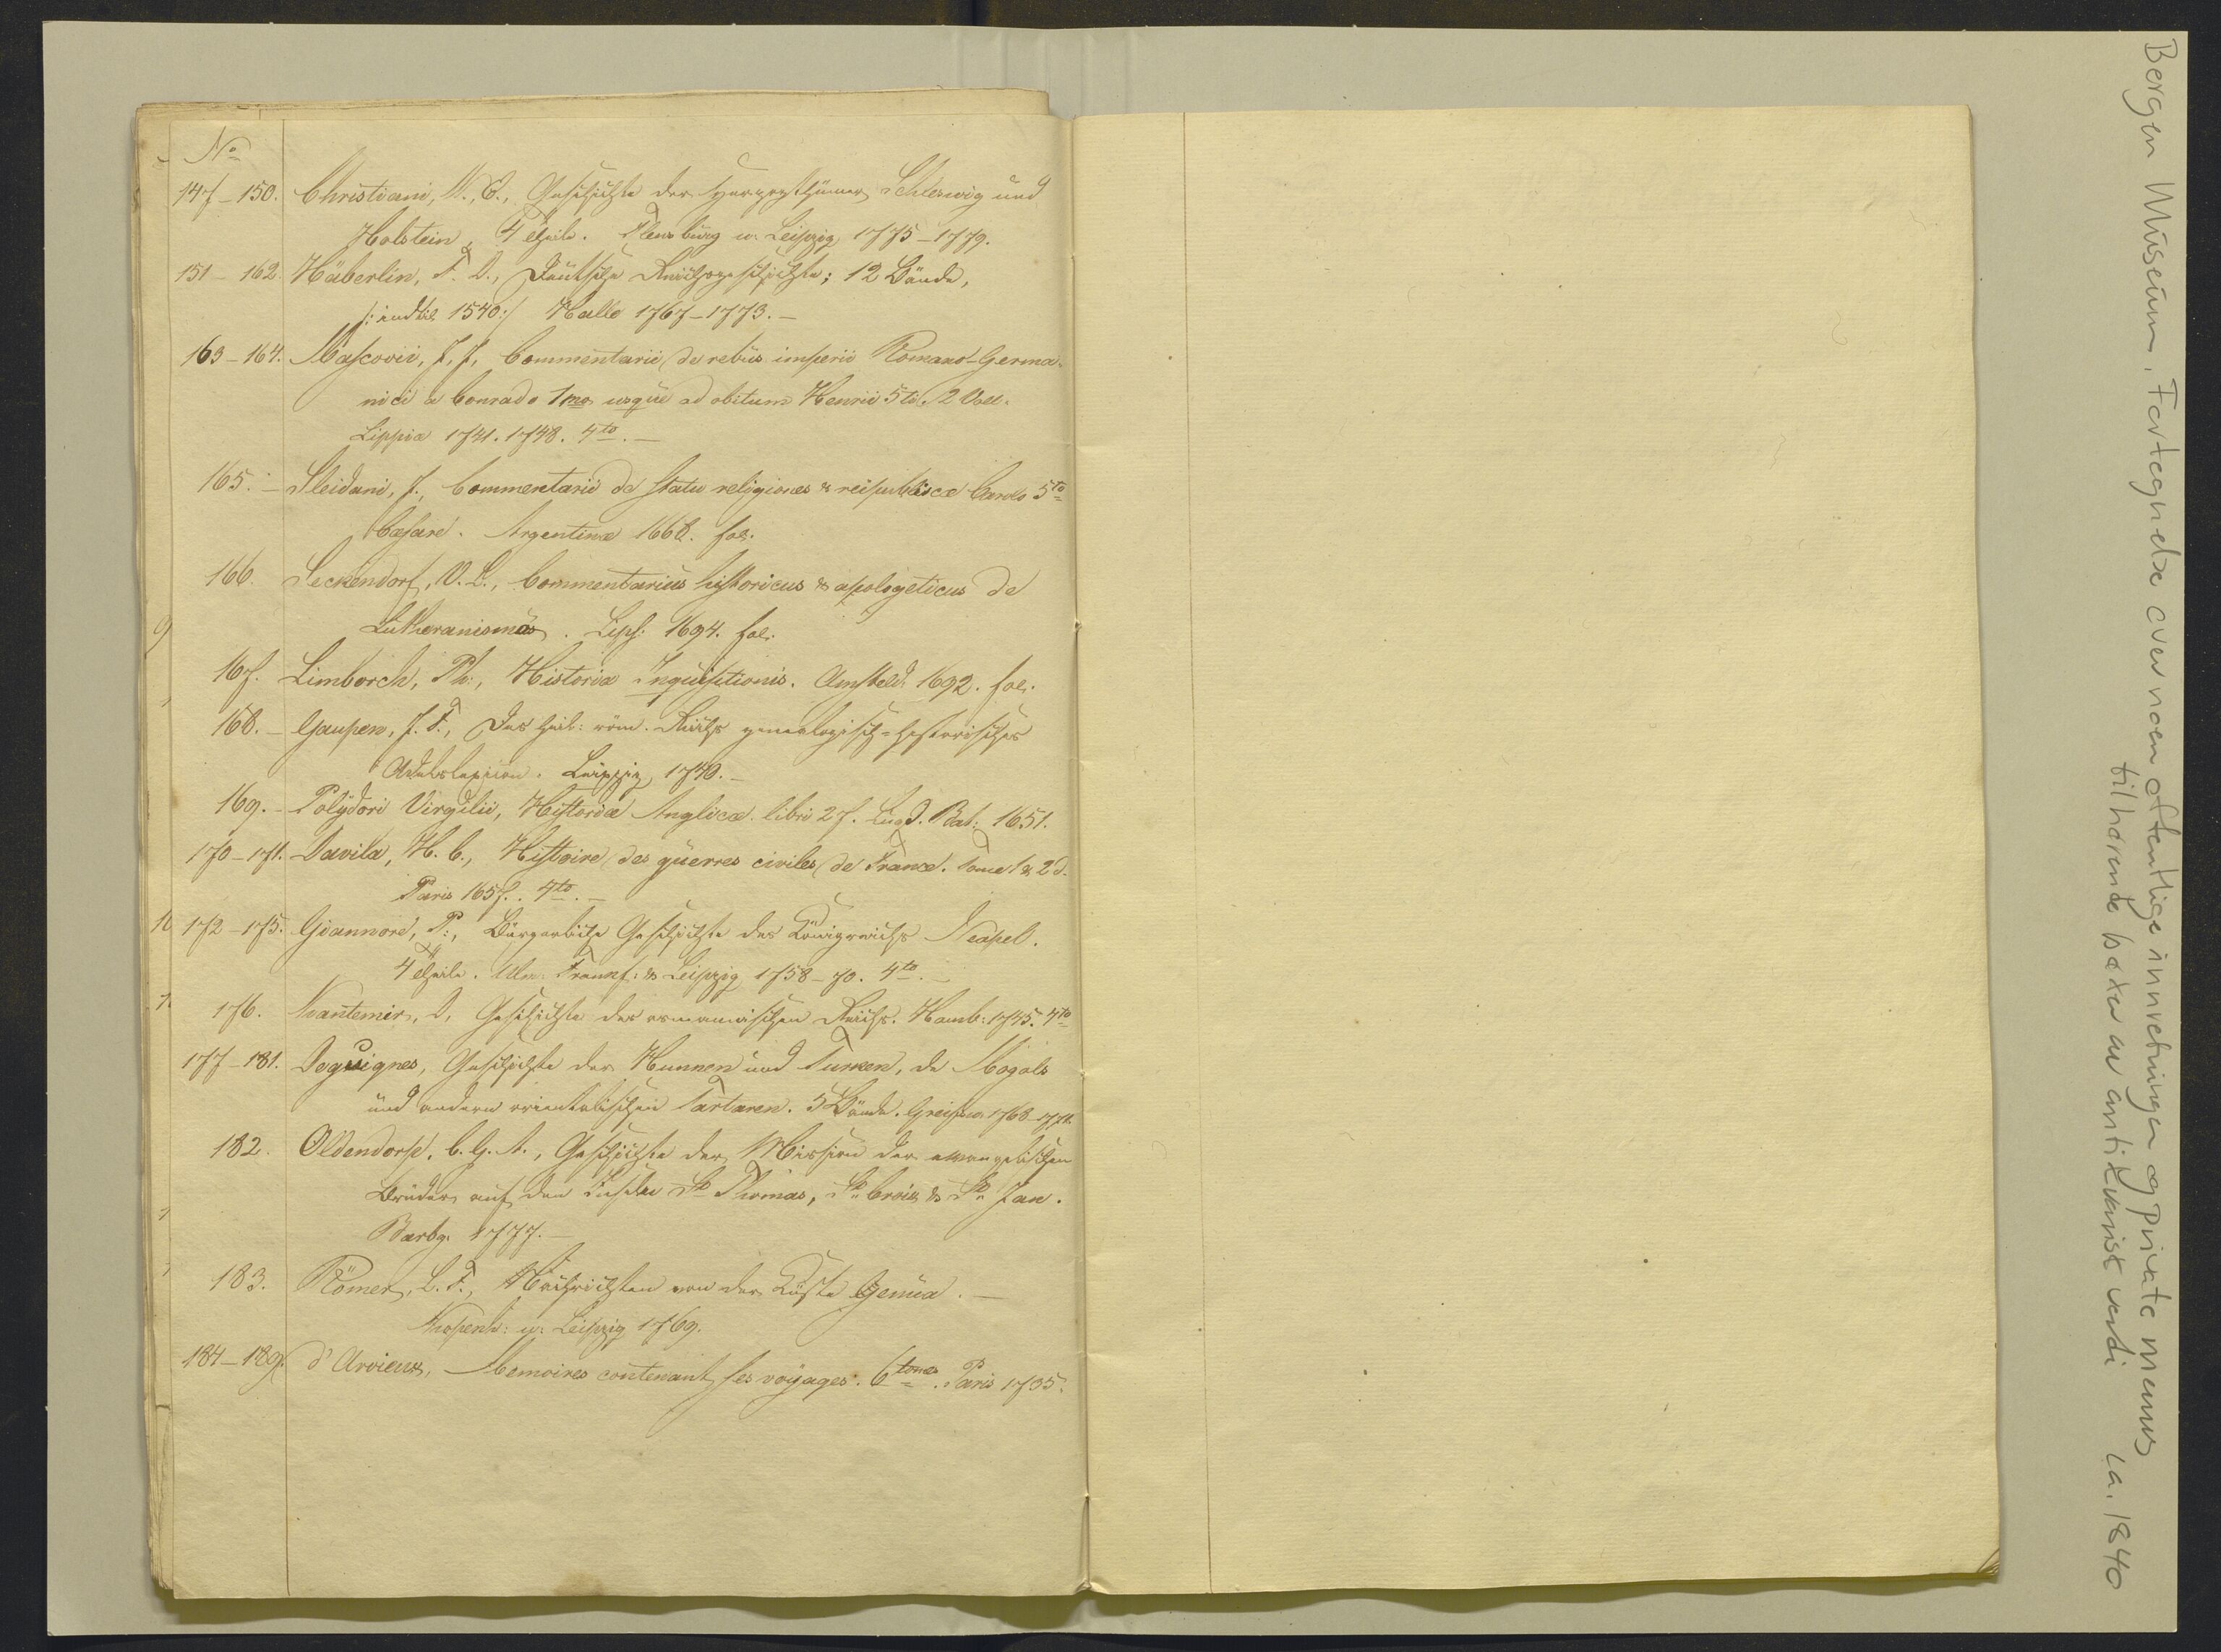 No
147–150. Christiani, W. E., Geschichte der Herzogthümer Schleswig und
Holstein, 4 Theile. Flensburg u. Leipzig 1775–1779.
151–162. Häberlin, F. D., Deutsche Reichsgeschichte; 12 Bände,
/: indtil 1540:/ Halle 1767–1773.–
163–164. Mascovii, J. J., Commentarii de rebus imperii Romano-Germa-
nici a Conrado 1mo usque ad obitum Henrii 5ti. 2 Voll.
Lippiæ 1741. 1748. 4to.–
165.– Sleidani, J., Commentarii de statu religiones & reipublicæ Carolo 5to
Cæsare. Argentinæ 1668. fol.
166. Seckendorf, V. L., Commentarius historicus & apologeticus de
Lutheranismo. Lips: 1694. fol.
167. Limborch, Ph:, Historia Inquisitionis. Amsteld: 1692. fol.
168.– Gaupen, J. F., Des heil: röm. Reichs genealogisch-historisches
Adelslexicon. Leipzig 1740.–
169.– Polydori Virgilii, Historiæ Anglicæ libri 27. Lugd. Bat: 1651.
170–171. Davila, H. C., Histoire des guerres civiles de France. Tome 1 & 2d.
Paris 1657. 4to.–
172–175. Giannone, P:, Bürgerliche Geschichte des Königreichs Neapel.
4 Theile. Ulm: Frankf: & Leipzig 1758–70. 4to.–
176. Kantemir, D, Geschichte des osmanischen Reichs. Hamb: 1745. 4to
177–181. Deguignes, Geschichte der Hunnen und Turken, de Mogols
und andern orientalischen Tartaren. 5 Bände. Greifsw. 1768–1771.
182. Oldendorp, C. G. A., Geschichte der Mission der evangelischen
Brüder auf den Inseln St Thomas, St Croix & St Jan.
Barby 1777.–
183. Römer, L. F., Nachrichten von der Küste Genüa.–
Kopenh: u: Leipzig 1769.
184–189. d'Arvieux, Memoires contenant ses voyages. 6 tomes. Paris 1735.
Bergen Museum, Fortegnelse over noen offentlige innretninger og private menns
tilhørende bøker av antikvarisk verdi ca. 1840